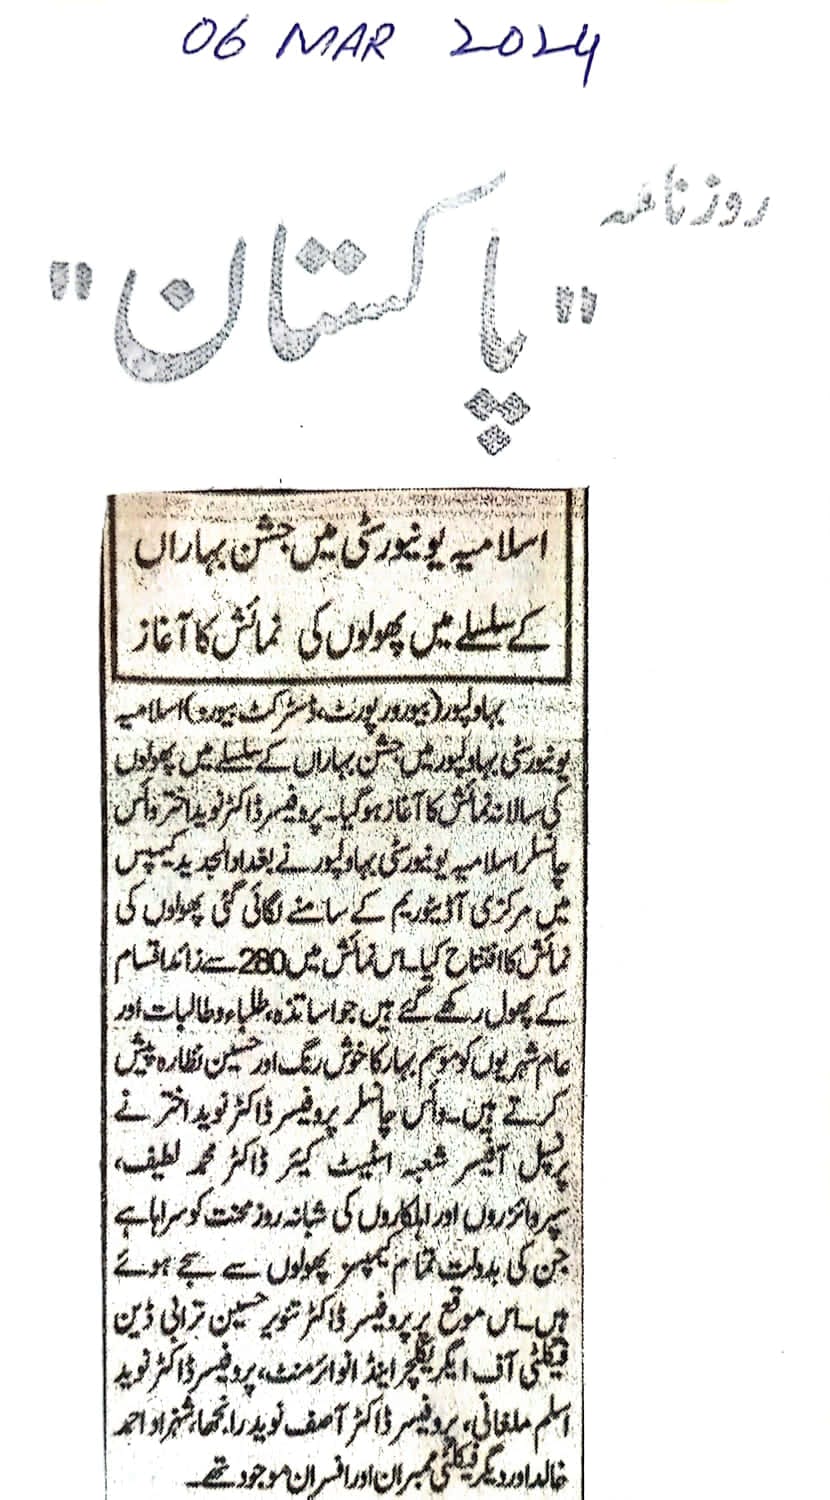 06 MAR 2024
روزنامہ
"پاکستان"
اسلامیہ یونیورسٹی میں جشن بہاراں
کے سلسلے میں پھولوں کی نمائش کا آغاز
بہاولپور(بیورورپورٹ،ڈسٹرکٹ بیورو)اسلامیہ
یونیورسٹی بہاولپور میں جشن بہاراں کے سلسلے میں پھولوں
کی سالانہ نمائش کا آغاز ہوگیا۔ پروفیسر ڈاکٹر نوید اختر وائس
چانسلر اسلامیہ یونیورسٹی بہاولپور نے بغداد الجدید کیمپس
میں مرکزی آڈیٹوریم کے سامنے لگائی گئی پھولوں کی
نمائش کا افتتاح کیا۔اس نمائش میں 280 سے زائد اقسام
کے پھول رکھے گئے ہیں جو اساتذہ، طلباء و طالبات اور
عام شہریوں کو موسم بہار کا خوش رنگ اور حسین نظارہ پیش
کرتے ہیں۔ وائس چانسلر پروفیسر ڈاکٹر نوید اختر نے
پرنسپل آفیسر شعبہ اسٹیٹ کیئر ڈاکٹر محمد لطیف،
سپروائزروں اور اہلکاروں کی شبانہ روز محنت کو سراہا ہے
جن کی بدولت تمام کیمپسز پھولوں سے سجے ہوئے
ہیں۔اس موقع پر پروفیسر ڈاکٹر تنویر حسین ترابی ڈین
فیکلٹی آف ایگریکلچر اینڈ انوائرمنٹ، پروفیسر ڈاکٹر نوید
اسلم ملغانی، پروفیسر ڈاکٹر آصف نوید رانجھا، شہزاد احمد
خالد اور دیگر فیکلٹی ممبران اور افسران موجود تھے۔